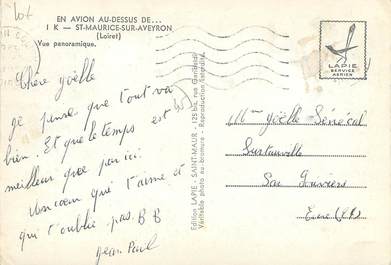 Lot
EN AVION AU-DESSUS DE...
1 K — ST-MAURICE-SUR-AVEYRON
(Loiret)
Vue panoramique.
LAPIE
SERVICE
AERIEN
Chère Joëlle
je pense que tout va
bien. Et que le temps est
meilleur que par ici.
Un cœur qui t'aime et
qui t'oublie pas. B B
Jean Paul
Edition LAPIE - SAINT-MAUR - 125 bis, rue Garibaldi
Véritable photo au bromure - Reproduction interdite.
Mme Joëlle Sénécal
Surtauville
par Louviers
Eure